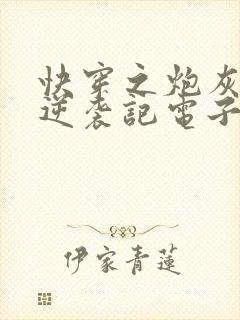 快穿之炮灰
逆袭記電子
伊家青蓮